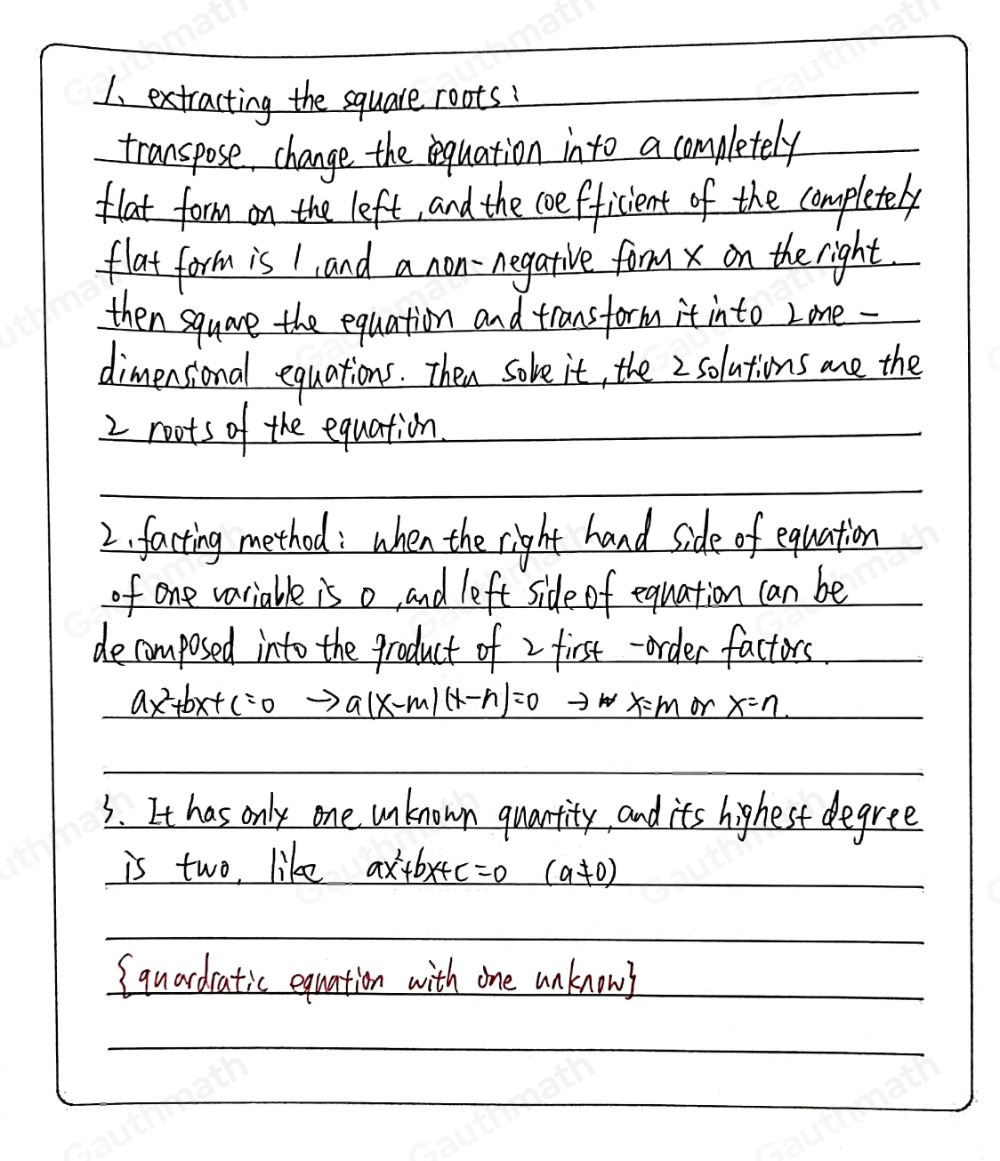 1、extracting the square roots:
transpose. change the equation into a completely
flat form on the left, and the coefficient of the completely
flat form is 1, and a non-negative form x on the right.
then square the equation and transform it into 2 one-
dimensional equations. Then solve it, the 2 solutions are the
2 roots of the equation.
2. facting method: when the right hand side of equation
of one variable is 0, and left side of equation can be
decomposed into the product of 2 first-order factors.
ax²+bx+c=0 → a(x-m)(x-n)=0 → x=m or x=n.
3. It has only one unknown quantity, and its highest degree
is two, like ax²+bx+c=0 (a≠0)
{quardratic equation with one unknow}
Gauthmath